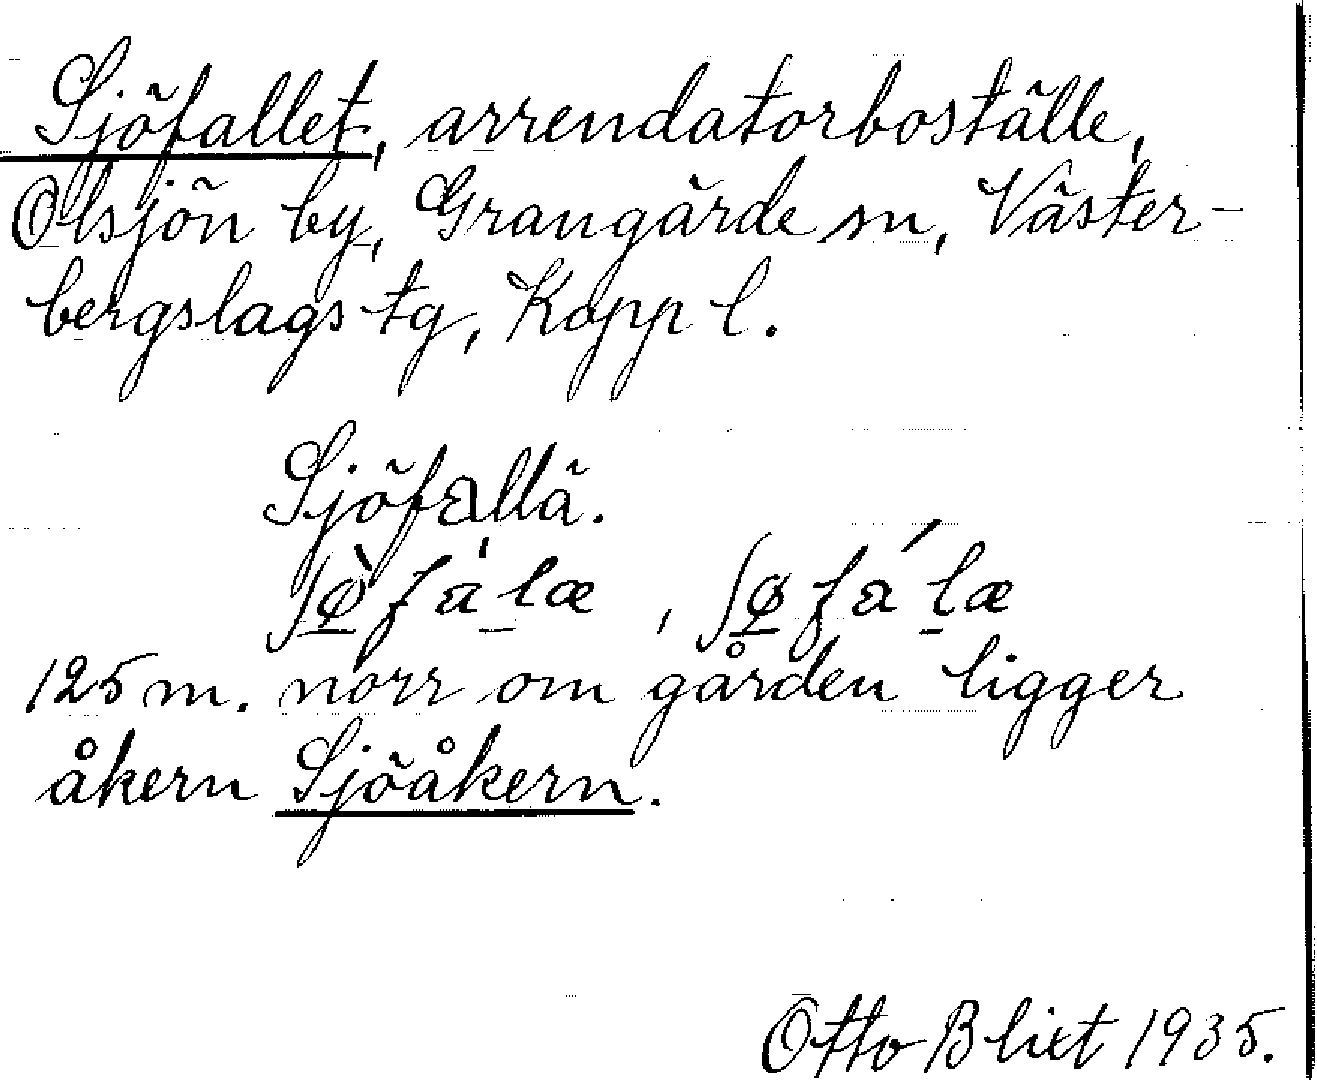 Sjöfallet, arrendatorboställe,
Olsjön by, Grangärde sn, Väster-
bergslags tg, Kopp l.
Sjöfallä.
ʃø̀fa̍læ, ʃøfa´læ
125 m. norr om gården ligger
åkern Sjöåkern.
Otto Blixt 1935.